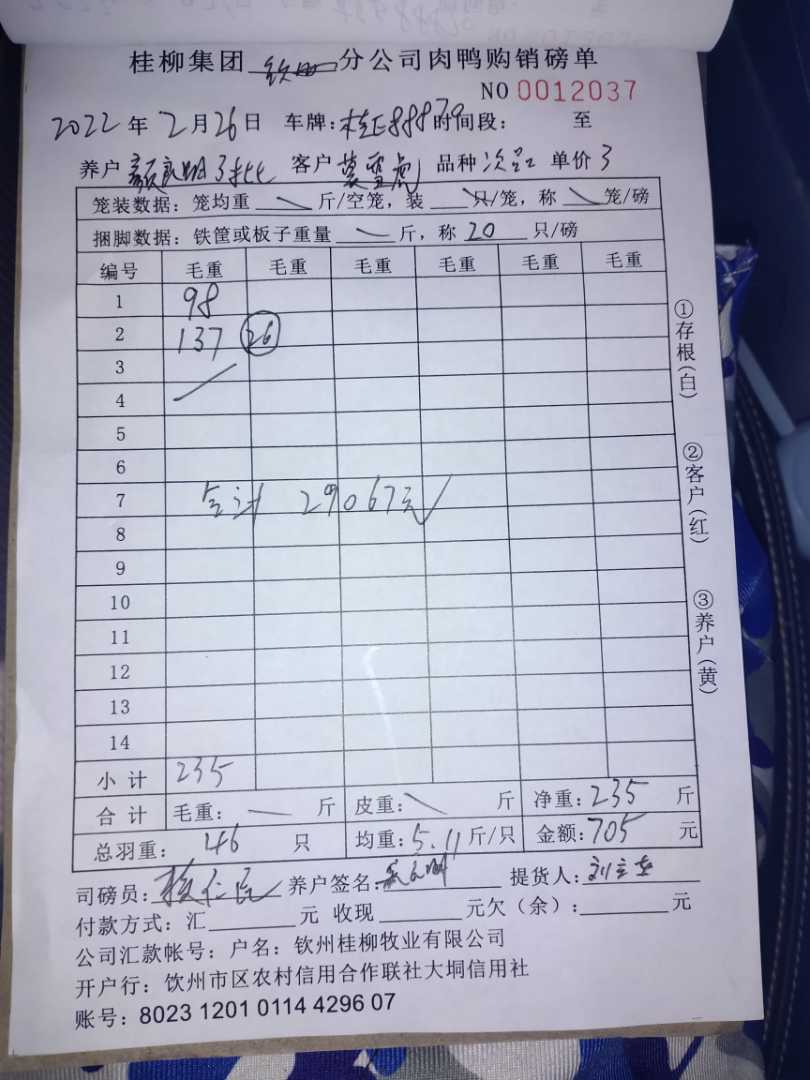 桂柳集团 钦州 分公司肉鸭购销磅单
NO 0012037
2022 年 2 月 26 日 车牌: 桂E88879 时间段: 至
养户 颜良明3批 客户 莫雪虎 品种 次品 单价 3
笼装数据: 笼均重 \ 斤/空笼, 装 \ 只/笼, 称 \ 笼/磅
捆脚数据: 铁筐或板子重量 \ 斤, 称 20 只/磅
编号 毛重 毛重 毛重 毛重 毛重 毛重
1 98
2 137 26
3
4
5
6
7 合计 29067元
8
9
10
11
12
13
14
小计 235
合计 毛重: 斤 皮重: \ 斤 净重: 235 斤
总羽重: 46 只 均重: 5.11 斤/只 金额: 705 元
司磅员: 养户签名: 提货人:
付款方式: 汇 元 收现 元欠(余): 元
公司汇款帐号: 户名: 钦州桂柳牧业有限公司
开户行: 饮州市区农村信用合作联社大垌信用社
账号: 8023 1201 0114 4296 07
①存根(白)
②客户(红)
③养户(黄)